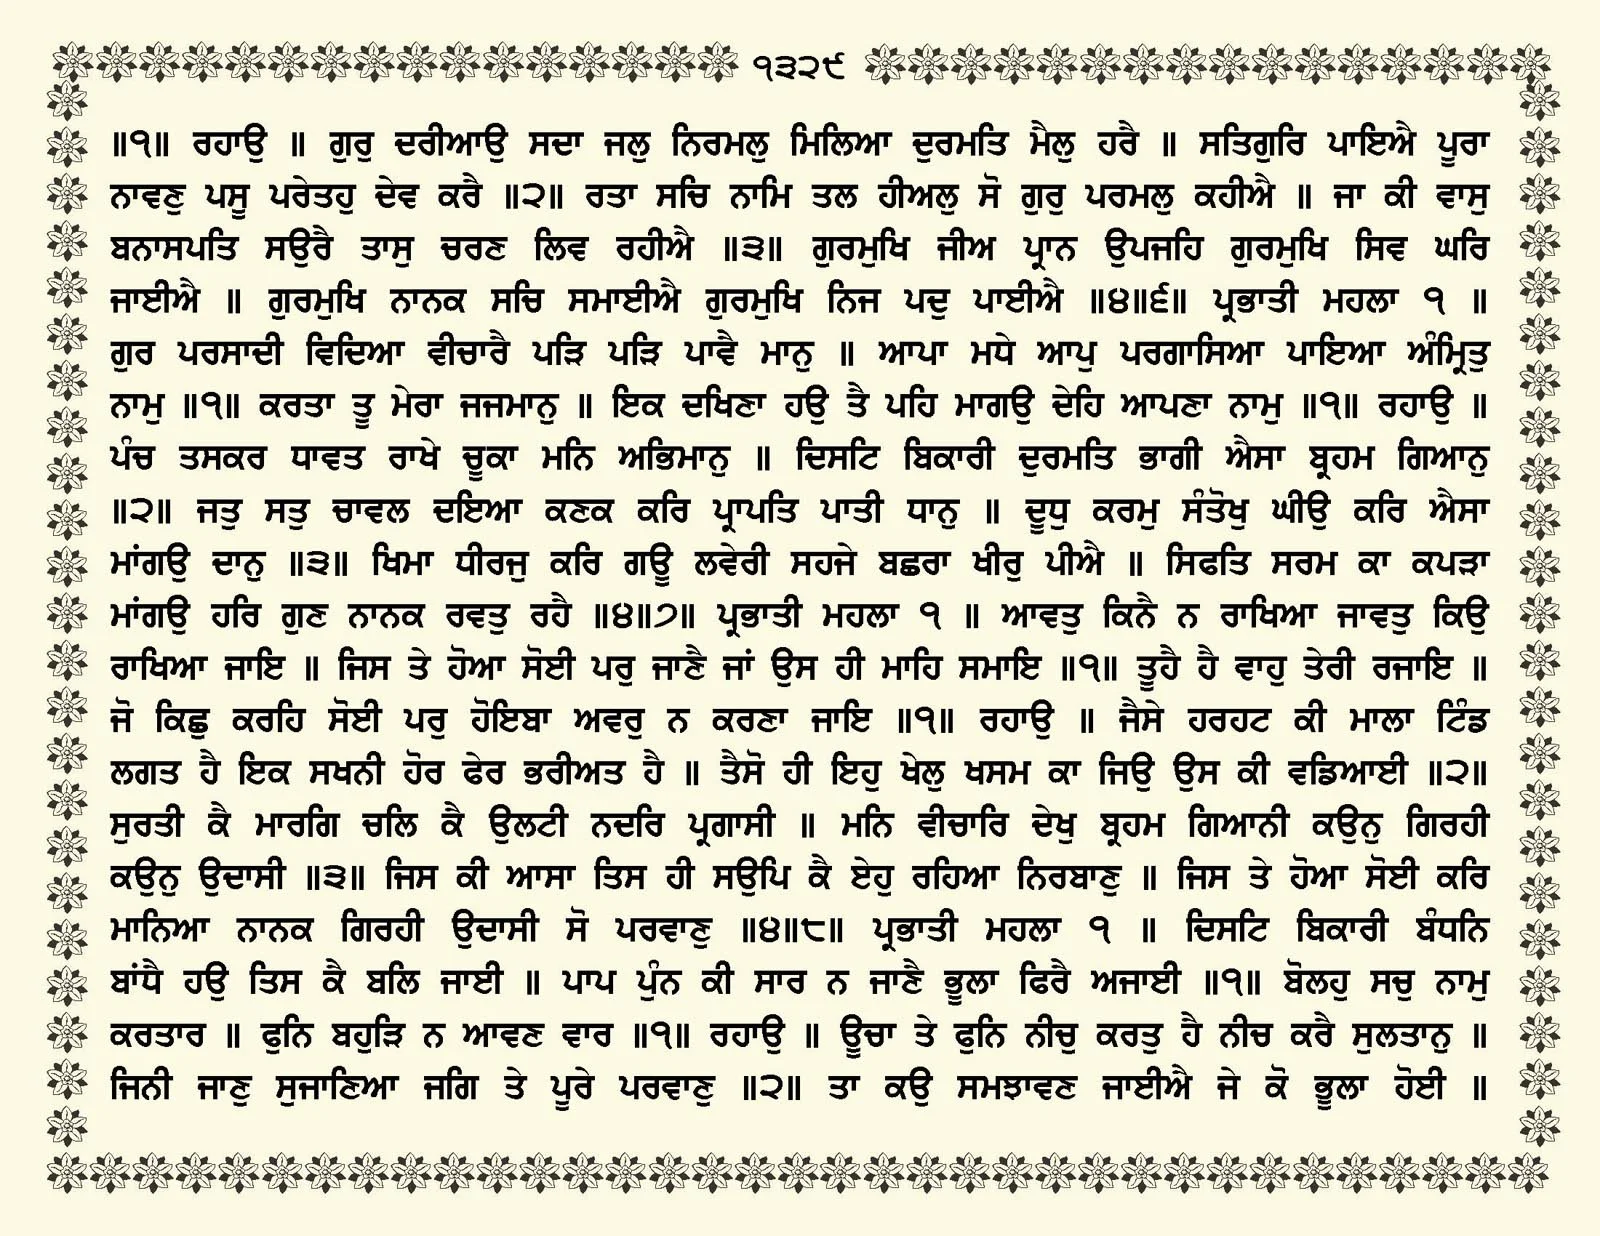 ੧੩੨੯
॥੧॥ ਰਹਾਉ ॥ ਗੁਰੁ ਦਰੀਆਉ ਸਦਾ ਜਲੁ ਨਿਰਮਲੁ ਮਿਲਿਆ ਦੁਰਮਤਿ ਮੈਲੁ ਹਰੈ ॥ ਸਤਿਗੁਰਿ ਪਾਇਐ ਪੂਰਾ
ਨਾਵਣੁ ਪਸੂ ਪਰੇਤਹੁ ਦੇਵ ਕਰੈ ॥੨॥ ਰਤਾ ਸਚਿ ਨਾਮਿ ਤਲ ਹੀਅਲੁ ਸੋ ਗੁਰੁ ਪਰਮਲੁ ਕਹੀਐ ॥ ਜਾ ਕੀ ਵਾਸੁ
ਬਨਾਸਪਤਿ ਸਉਰੈ ਤਾਸੁ ਚਰਣ ਲਿਵ ਰਹੀਐ ॥੩॥ ਗੁਰਮੁਖਿ ਜੀਅ ਪ੍ਰਾਨ ਉਪਜਹਿ ਗੁਰਮੁਖਿ ਸਿਵ ਘਰਿ
ਜਾਈਐ ॥ ਗੁਰਮੁਖਿ ਨਾਨਕ ਸਚਿ ਸਮਾਈਐ ਗੁਰਮੁਖਿ ਨਿਜ ਪਦੁ ਪਾਈਐ ॥੪॥੬॥ ਪ੍ਰਭਾਤੀ ਮਹਲਾ ੧ ॥
ਗੁਰ ਪਰਸਾਦੀ ਵਿਦਿਆ ਵੀਚਾਰੈ ਪੜਿ ਪੜਿ ਪਾਵੈ ਮਾਨੁ ॥ ਆਪਾ ਮਧੇ ਆਪੁ ਪਰਗਾਸਿਆ ਪਾਇਆ ਅੰਮ੍ਰਿਤੁ
ਨਾਮੁ ॥੧॥ ਕਰਤਾ ਤੂ ਮੇਰਾ ਜਜਮਾਨੁ ॥ ਇਕ ਦਖਿਣਾ ਹਉ ਤੈ ਪਹਿ ਮਾਗਉ ਦੇਹਿ ਆਪਣਾ ਨਾਮੁ ॥੧॥ ਰਹਾਉ ॥
ਪੰਚ ਤਸਕਰ ਧਾਵਤ ਰਾਖੇ ਚੂਕਾ ਮਨਿ ਅਭਿਮਾਨੁ ॥ ਦਿਸਟਿ ਬਿਕਾਰੀ ਦੁਰਮਤਿ ਭਾਗੀ ਐਸਾ ਬ੍ਰਹਮ ਗਿਆਨੁ
॥੨॥ ਜਤੁ ਸਤੁ ਚਾਵਲ ਦਇਆ ਕਣਕ ਕਰਿ ਪ੍ਰਾਪਤਿ ਪਾਤੀ ਧਾਨੁ ॥ ਦੂਧੁ ਕਰਮੁ ਸੰਤੋਖੁ ਘੀਉ ਕਰਿ ਐਸਾ
ਮਾਂਗਉ ਦਾਨੁ ॥੩॥ ਖਿਮਾ ਧੀਰਜੁ ਕਰਿ ਗਊ ਲਵੇਰੀ ਸਹਜੇ ਬਛਰਾ ਖੀਰੁ ਪੀਐ ॥ ਸਿਫਤਿ ਸਰਮ ਕਾ ਕਪੜਾ
ਮਾਂਗਉ ਹਰਿ ਗੁਣ ਨਾਨਕ ਰਵਤੁ ਰਹੈ ॥੪॥੭॥ ਪ੍ਰਭਾਤੀ ਮਹਲਾ ੧ ॥ ਆਵਤੁ ਕਿਨੈ ਨ ਰਾਖਿਆ ਜਾਵਤੁ ਕਿਉ
ਰਾਖਿਆ ਜਾਇ ॥ ਜਿਸ ਤੇ ਹੋਆ ਸੋਈ ਪਰੁ ਜਾਣੈ ਜਾਂ ਉਸ ਹੀ ਮਾਹਿ ਸਮਾਇ ॥੧॥ ਤੂਹੈ ਹੈ ਵਾਹੁ ਤੇਰੀ ਰਜਾਇ ॥
ਜੋ ਕਿਛੁ ਕਰਹਿ ਸੋਈ ਪਰੁ ਹੋਇਬਾ ਅਵਰੁ ਨ ਕਰਣਾ ਜਾਇ ॥੧॥ ਰਹਾਉ ॥ ਜੈਸੇ ਹਰਹਟ ਕੀ ਮਾਲਾ ਟਿੰਡ
ਲਗਤ ਹੈ ਇਕ ਸਖਨੀ ਹੋਰ ਫੇਰ ਭਰੀਅਤ ਹੈ ॥ ਤੈਸੋ ਹੀ ਇਹੁ ਖੇਲੁ ਖਸਮ ਕਾ ਜਿਉ ਉਸ ਕੀ ਵਡਿਆਈ ॥੨॥
ਸੁਰਤੀ ਕੈ ਮਾਰਗਿ ਚਲਿ ਕੈ ਉਲਟੀ ਨਦਰਿ ਪ੍ਰਗਾਸੀ ॥ ਮਨਿ ਵੀਚਾਰਿ ਦੇਖੁ ਬ੍ਰਹਮ ਗਿਆਨੀ ਕਉਨੁ ਗਿਰਹੀ
ਕਉਨੁ ਉਦਾਸੀ ॥੩॥ ਜਿਸ ਕੀ ਆਸਾ ਤਿਸ ਹੀ ਸਉਪਿ ਕੈ ਏਹੁ ਰਹਿਆ ਨਿਰਬਾਣੁ ॥ ਜਿਸ ਤੇ ਹੋਆ ਸੋਈ ਕਰਿ
ਮਾਨਿਆ ਨਾਨਕ ਗਿਰਹੀ ਉਦਾਸੀ ਸੋ ਪਰਵਾਣੁ ॥੪॥੮॥ ਪ੍ਰਭਾਤੀ ਮਹਲਾ ੧ ॥ ਦਿਸਟਿ ਬਿਕਾਰੀ ਬੰਧਨਿ
ਬਾਂਧੈ ਹਉ ਤਿਸ ਕੈ ਬਲਿ ਜਾਈ ॥ ਪਾਪ ਪੁੰਨ ਕੀ ਸਾਰ ਨ ਜਾਣੈ ਭੂਲਾ ਫਿਰੈ ਅਜਾਈ ॥੧॥ ਬੋਲਹੁ ਸਚੁ ਨਾਮੁ
ਕਰਤਾਰ ॥ ਫੁਨਿ ਬਹੁੜਿ ਨ ਆਵਣ ਵਾਰ ॥੧॥ ਰਹਾਉ ॥ ਊਚਾ ਤੇ ਫੁਨਿ ਨੀਚੁ ਕਰਤੁ ਹੈ ਨੀਚ ਕਰੈ ਸੁਲਤਾਨੁ ॥
ਜਿਨੀ ਜਾਣੁ ਸੁਜਾਣਿਆ ਜਗਿ ਤੇ ਪੂਰੇ ਪਰਵਾਣੁ ॥੨॥ ਤਾ ਕਉ ਸਮਝਾਵਣ ਜਾਈਐ ਜੇ ਕੋ ਭੂਲਾ ਹੋਈ ॥